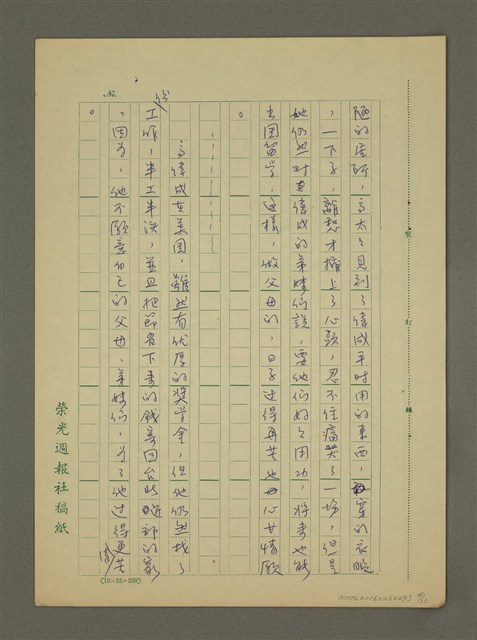 陋的居所,高太太見到了德成平時用的東西,穿的衣服
,一下子,離愁才擁上了心頭,忍不住痛哭了一場,但是
她仍然对德成的弟妹們說,要他們好好用功,将来也能
出国留学,这樣,做父母的,日子过得再苦也心甘情願
。
高德成在美国,雖然有优厚的奨学金,但他仍然找了
份工作,半工半讀,並且把節省下来的錢寄回台北的家
,因为,他不願意自己的父母、弟妹們,为了他过得更苦
。
No.
裝 訂 線
榮光週報社稿紙
(10×25=250)